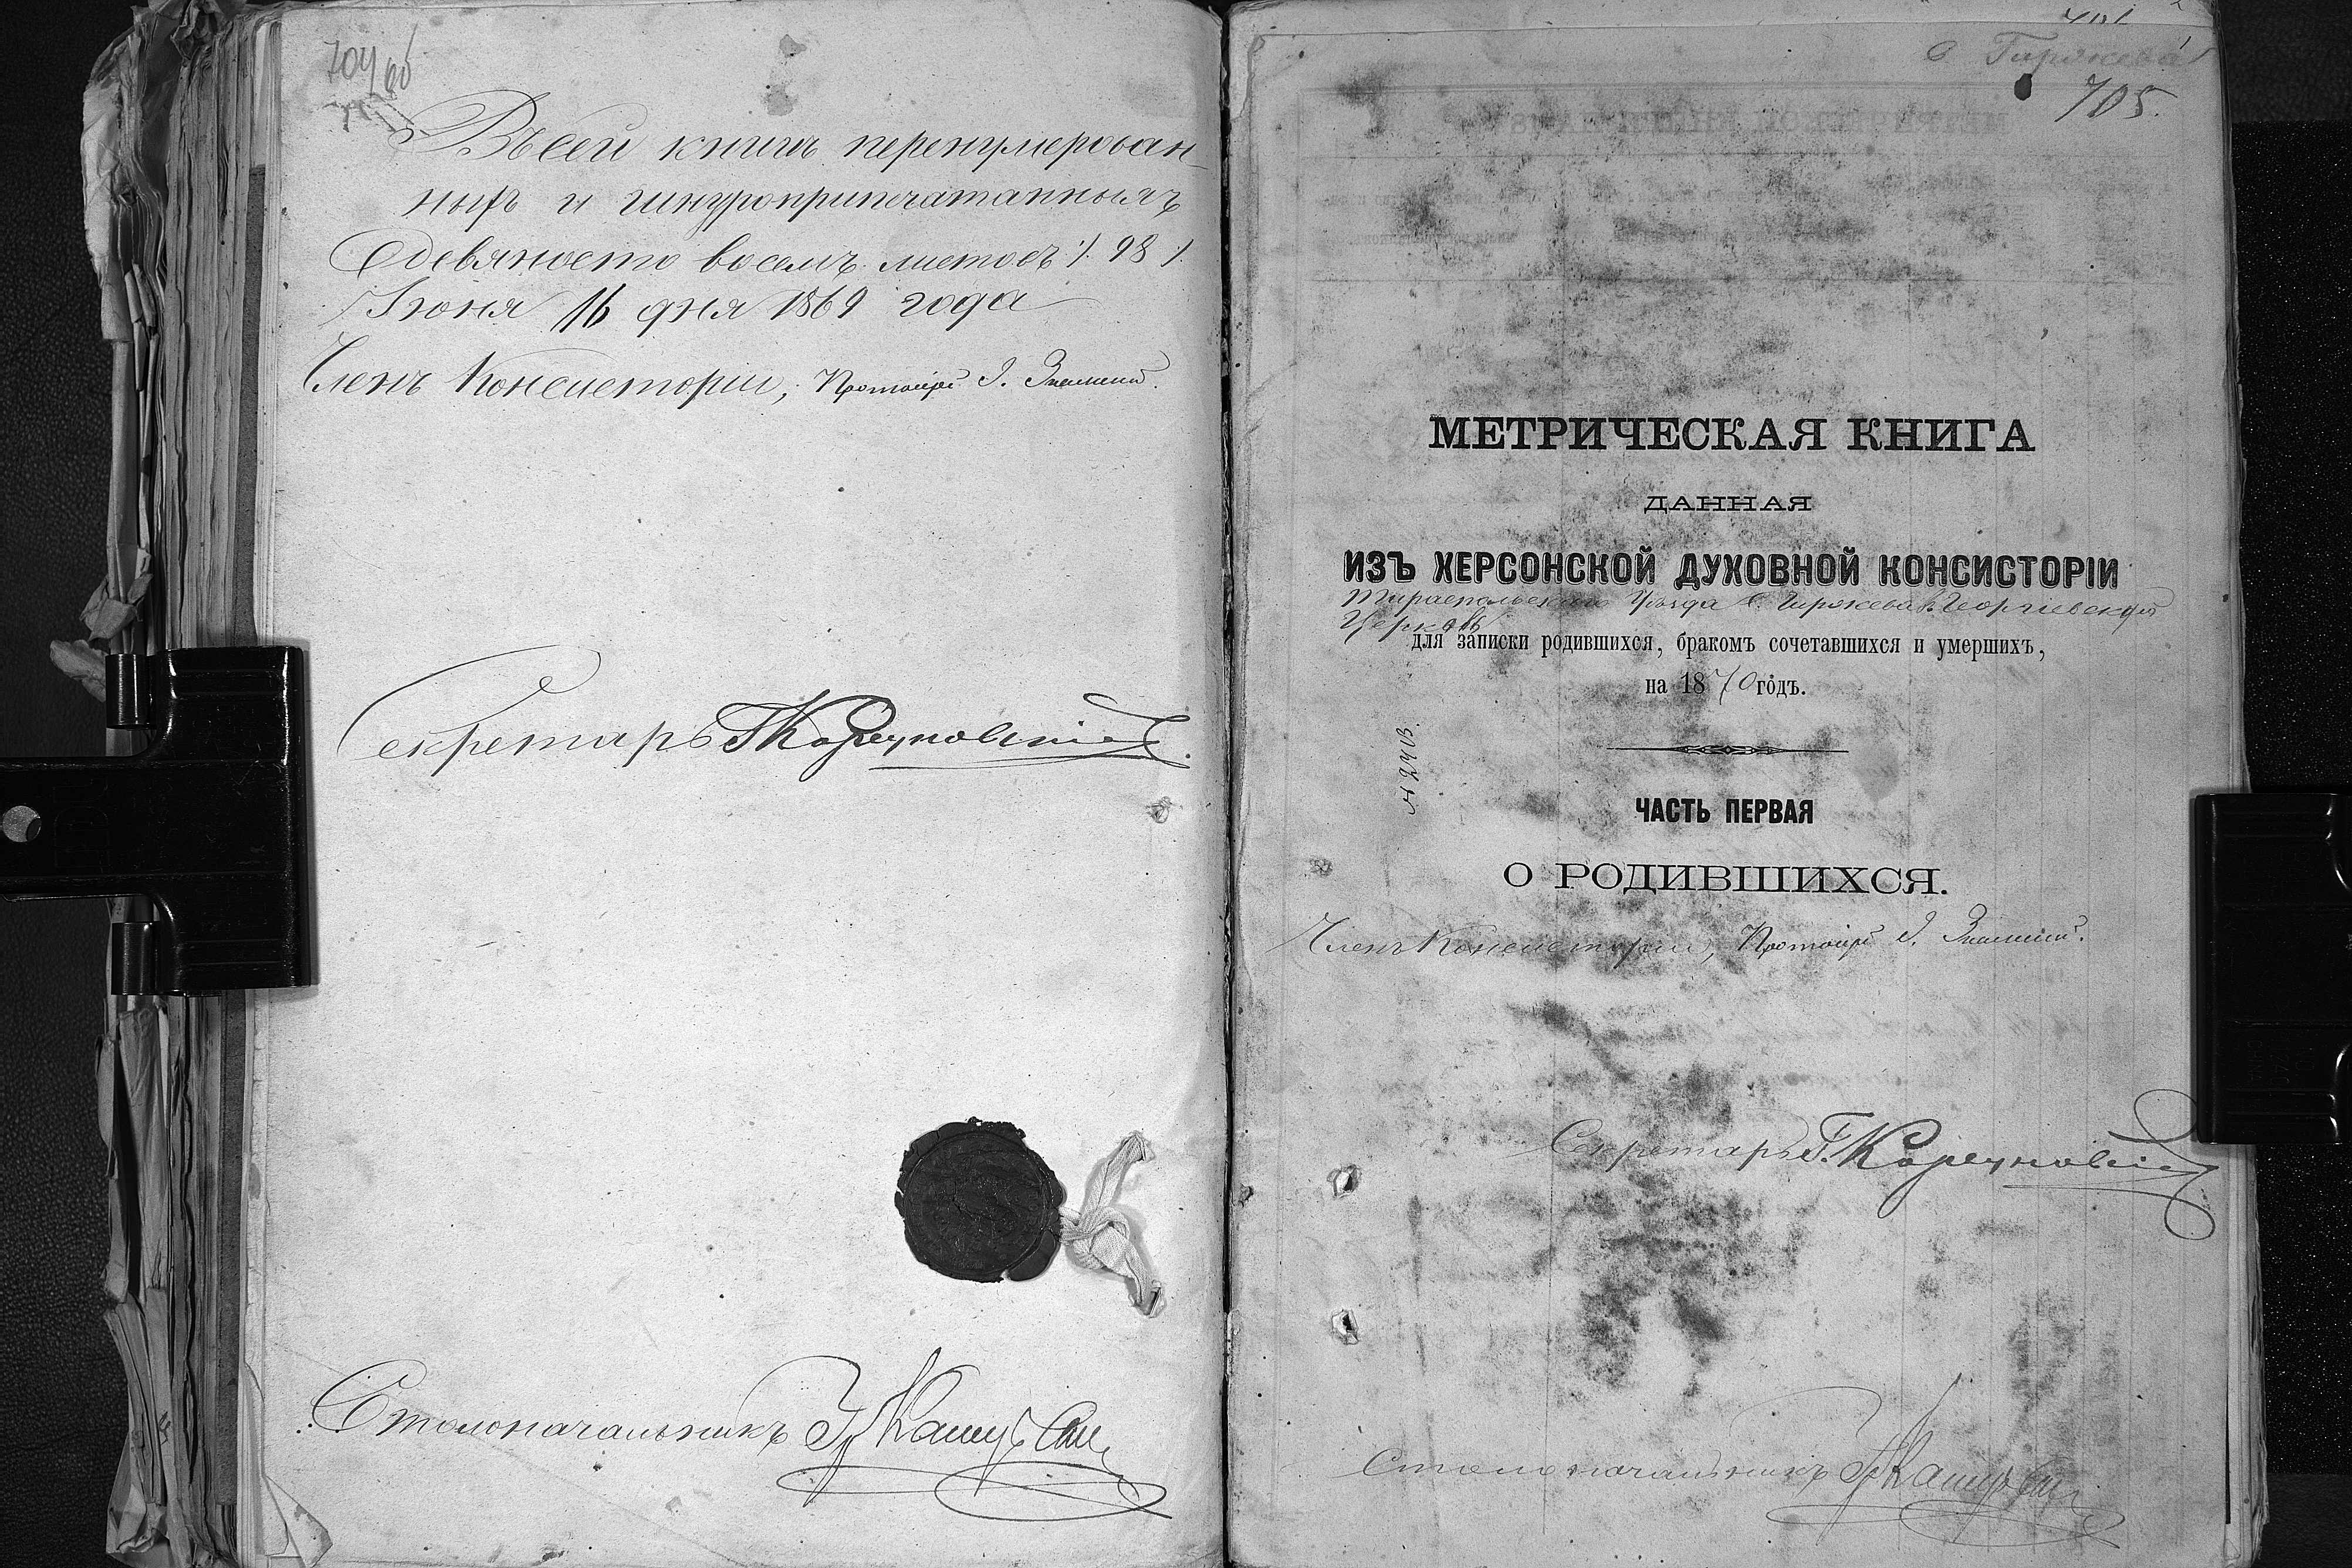 704 об
Въ сей книги перенумерован-
ныхъ и шнуроприпечатанныхъ
девяносто восемъ листовъ ⁒ 98 ⁒
Іюня 16 дня 1869 года
Членъ Консисторіи, Протоіерей І. Знаменскій.
Секретарь
Столоначальникъ
с Гиржева
705.
МЕТРИЧЕСКАЯ КНИГА
ДАННАЯ
ИЗЪ ХЕРСОНСКОЙ ДУХОВНОЙ КОНСИСТОРІИ
Тираспольскаго Уѣзда с. Гиржева въ Георгіевскую
Церковь
для записки родившихся, бракомъ сочетавшихся и умершихъ,
на 1870 годъ.
ЧАСТЬ ПЕРВАЯ
О РОДИВШИХСЯ.
Членъ Консисторіи, Протоіерей І. Знаменскій.
Секретарь
Столоначальникъ